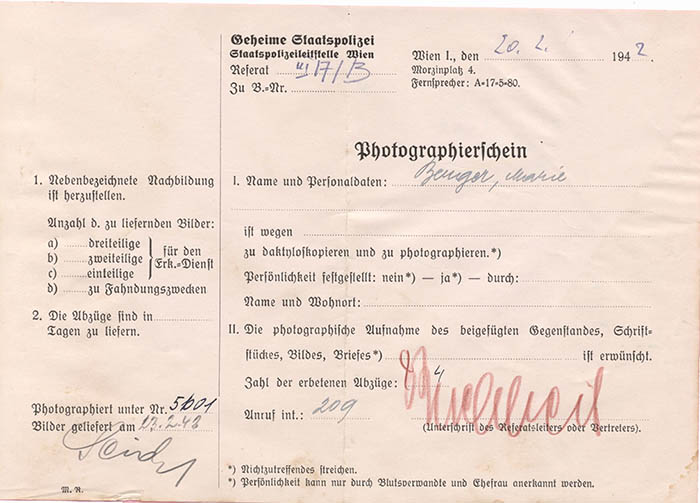 Geheime Staatspolizei
Staatspolizeileitstelle Wien
Referat III 7/B
Zu B.=Nr.
Wien I., den 20. 2. 1942.
Morzinplatz 4.
Fernsprecher: A=17=5=80.
Photographierschein
1. Nebenbezeichnete Nachbildung
ist herzustellen.
Anzahl d. zu liefernden Bilder:
a) dreiteilige
b) zweiteilige
c) einteilige
für den
Erk.=Dienst
d) zu Fahndungszwecken
2. Die Abzüge sind in
Tagen zu liefern.
Photographiert unter Nr. 5601
Bilder geliefert am 23.2.42
M. R.
I. Name und Personaldaten: Berger, Marie
ist wegen
zu daktyloskopieren und zu photographieren.*)
Persönlichkeit festgestellt: nein*) — ja*) — durch:
Name und Wohnort:
II. Die photographische Aufnahme des beigefügten Gegenstandes, Schrift=
stückes, Bildes, Briefes*) ist erwünscht.
Zahl der erbetenen Abzüge: 4
Anruf int.: 209
(Unterschrift des Referatsleiters oder Vertreters).
*) Nichtzutreffendes streichen.
*) Persönlichkeit kann nur durch Blutsverwandte und Ehefrau anerkannt werden.